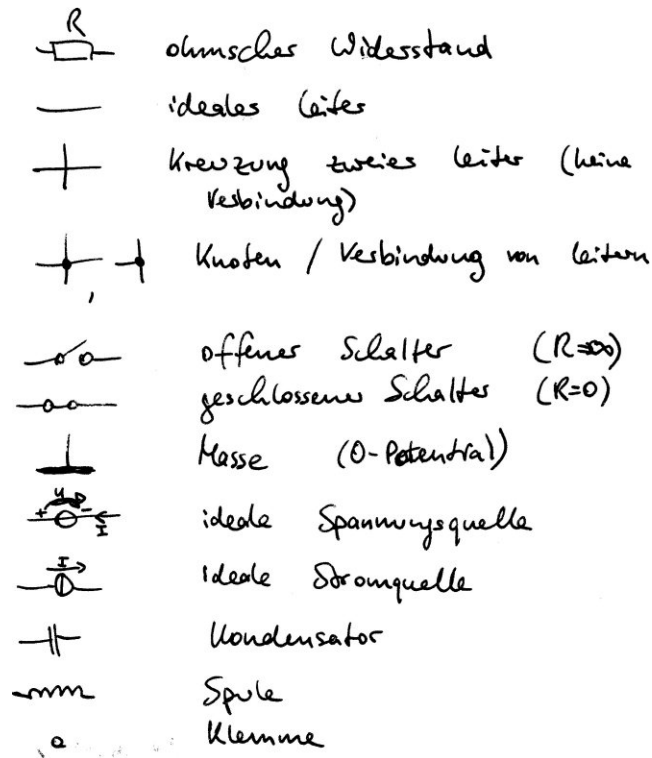 R
ohmscher Widerstand
idealer Leiter
Kreuzung zweier Leiter (keine
Verbindung)
, Knoten / Verbindung von Leitern
offener Schalter (R=∞)
geschlossener Schalter (R=0)
Masse (0-Potential)
+ U - I ideale Spannungsquelle
I ideale Stromquelle
Kondensator
Spule
Klemme